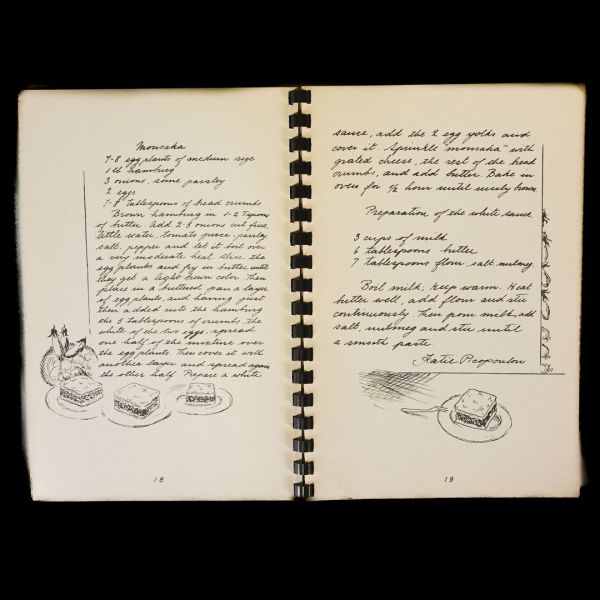 Mousaka
7-8 egg plants of medium size
1 lb hamburg
3 onions, some parsley
2 eggs
7-8 tablespoons of bread crumbs
Brown hamburg in 1-2 spoons
of butter. Add 2-3 onions cut fine,
little water, tomato juice, parsley,
salt, pepper and let it boil over
a very moderate heat. Slice the
egg plants and fry in butter until
they get a light brown color. Then
place in a buttered pan a layer
of egg plants, and having just
then added into the hamburg
the 5 tablespoons of crumbs, the
white of the two eggs, spread
one half of the mixture over
the egg plants. Then cover it with
another layer and spread again
the other half. Prepare a white
18
sauce, add the 2 egg yolks and
cover it. Sprinkle "mousaka" with
grated cheese, the rest of the bread
crumbs, and add butter. Bake in
oven for ½ hour until nicely brown
Preparation of the white sauce
3 cups of milk
6 tablespoons butter
7 tablespoons flour, salt, nutmeg
Boil milk; keep warm. Heat
butter well, add flour and stir
continuously. Then pour milk, add
salt, nutmeg and stir until
a smooth paste
Katie
19